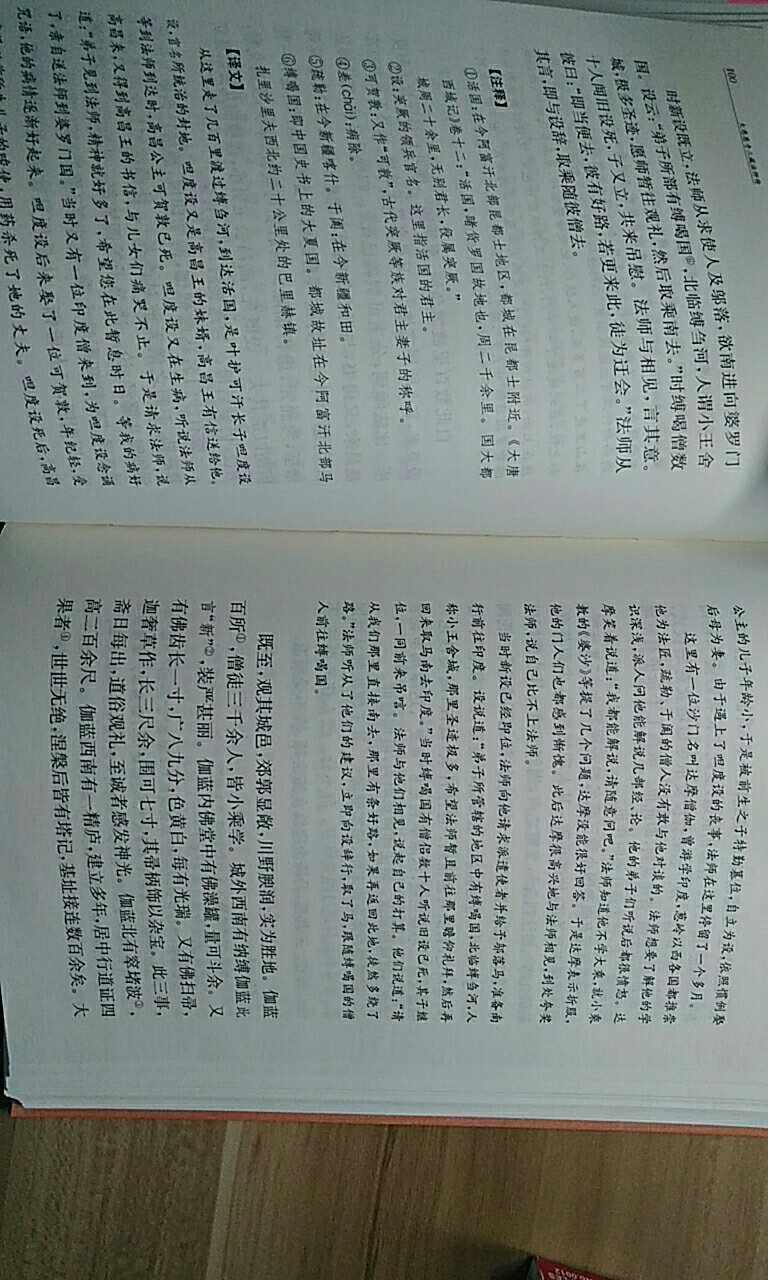 100
大慈恩寺三藏法师传
时新设既立,法师从求使人及邬落,欲南进向婆罗门
国。设云:“弟子所部有缚喝国⑥,北临缚刍河,人谓小王舍
城,极多圣迹,愿师暂往观礼,然后取乘南去。”时缚喝僧数
十人闻旧设死,子又立,共来吊慰。法师与相见,言其意。
彼曰:“即当便去,彼有好路,若更来此,徒为迂会。”法师从
其言,即与设辞,取乘随彼僧去。
【注释】
①活国:在今阿富汗北部昆都士地区,都城在昆都士附近。《大唐
西域记》卷十二:“活国,睹货罗国故地也,周二千余里。国大都
城周二十余里,无别君长,役属突厥。”
②设:突厥的领兵官名。这里指活国的君主。
③可贺敦:又作“可敦”,古代突厥等族对君主妻子的称呼。
④差(chài):病除。
⑤疏勒:在今新疆喀什。于阗:在今新疆和田。
⑥缚喝国:即中国史书上的大夏国。都城故址在今阿富汗北部马
扎里沙里夫西北约二十公里处的巴里赫镇。
【译文】
从这里走了几百里渡过缚刍河,到达活国,是叶护可汗长子呾度设
设,官名所统治的封地。呾度设又是高昌王的妹婿,高昌王有信送给他。
等到法师到达时,高昌公主可贺敦已死。呾度设又在生病,听说法师从
高昌来,又得到高昌王的书信,与儿女们痛哭不止。于是请求法师,说
道:“弟子见到法师,精神就好多了,希望您在此暂息时日。等我的病好
了,亲自送法师到婆罗门国。”当时又有一位印度僧来到,为呾度设念诵
咒语,他的病情逐渐好起来。呾度设后来娶了一位可贺敦,年纪轻,受
用药杀死了她的丈夫。呾度设死后,高昌
公主的儿子年龄小,于是被前生之子特勤篡位,自立为设,依照惯例娶
后母为妻。由于遇上了呾度设的丧事,法师在这里停留了一个多月。
这里有一位沙门名叫达摩僧伽,曾游学印度,葱岭以西各国都推崇
他为法匠,疏勒、于阗的僧人没有敢与他对谈的。法师想要了解他的学
识深浅,派人问他能解说几部经、论。他的弟子们听说后都很愤怒。达
摩笑着说道:“我都能解说,请随意问吧。”法师知道他不学大乘,就小乘
教的《婆沙》等提了几个问题,达摩没能很好回答。于是达摩表示折服,
他的门人们也都感到惭愧。此后达摩很高兴地与法师相见,到处夸奖
法师,说自己比不上法师。
当时新设已经即位,法师向他请求派遣使者并给予邬落马,准备南
行前往印度。设说道:“弟子所管辖的地区中有缚喝国,北临缚刍河,人
称小王舍城,那里圣迹极多,希望法师暂且前往那里瞻仰礼拜,然后再
回来取马南去印度。”当时缚喝国有僧侣数十人听说旧设已死,其子继
位,一同前来吊唁。法师与他们相见,说起自己的打算。他们说道:“请
从我们那里直接南去,那里有条好路,如果再返回此地,徒然多绕了
路。”法师听从了他们的建议,立即向设辞行,取了马,跟随缚喝国的僧
人前往缚喝国。
既至,观其城邑,郊郭显敞,川野腴润,实为胜地。伽蓝
百所①,僧徒三千余人,皆小乘学。城外西南有纳缚伽蓝此
言“新”②,装严甚丽。伽蓝内佛堂中有佛澡罐,量可斗余。又
有佛齿长一寸,广八九分,色黄白,每有光瑞。又有佛扫帚,
迦奢草作,长三尺余,围可七寸,其帚柄饰以杂宝。此三事,
斋日每出,道俗观礼,至诚者感发神光。伽蓝北有窣堵波③,
高二百余尺。伽蓝西南有一精庐,建立多年,居中行道证四
果者④,世世无绝,涅槃后皆有塔记,基址接连数百余矣。大